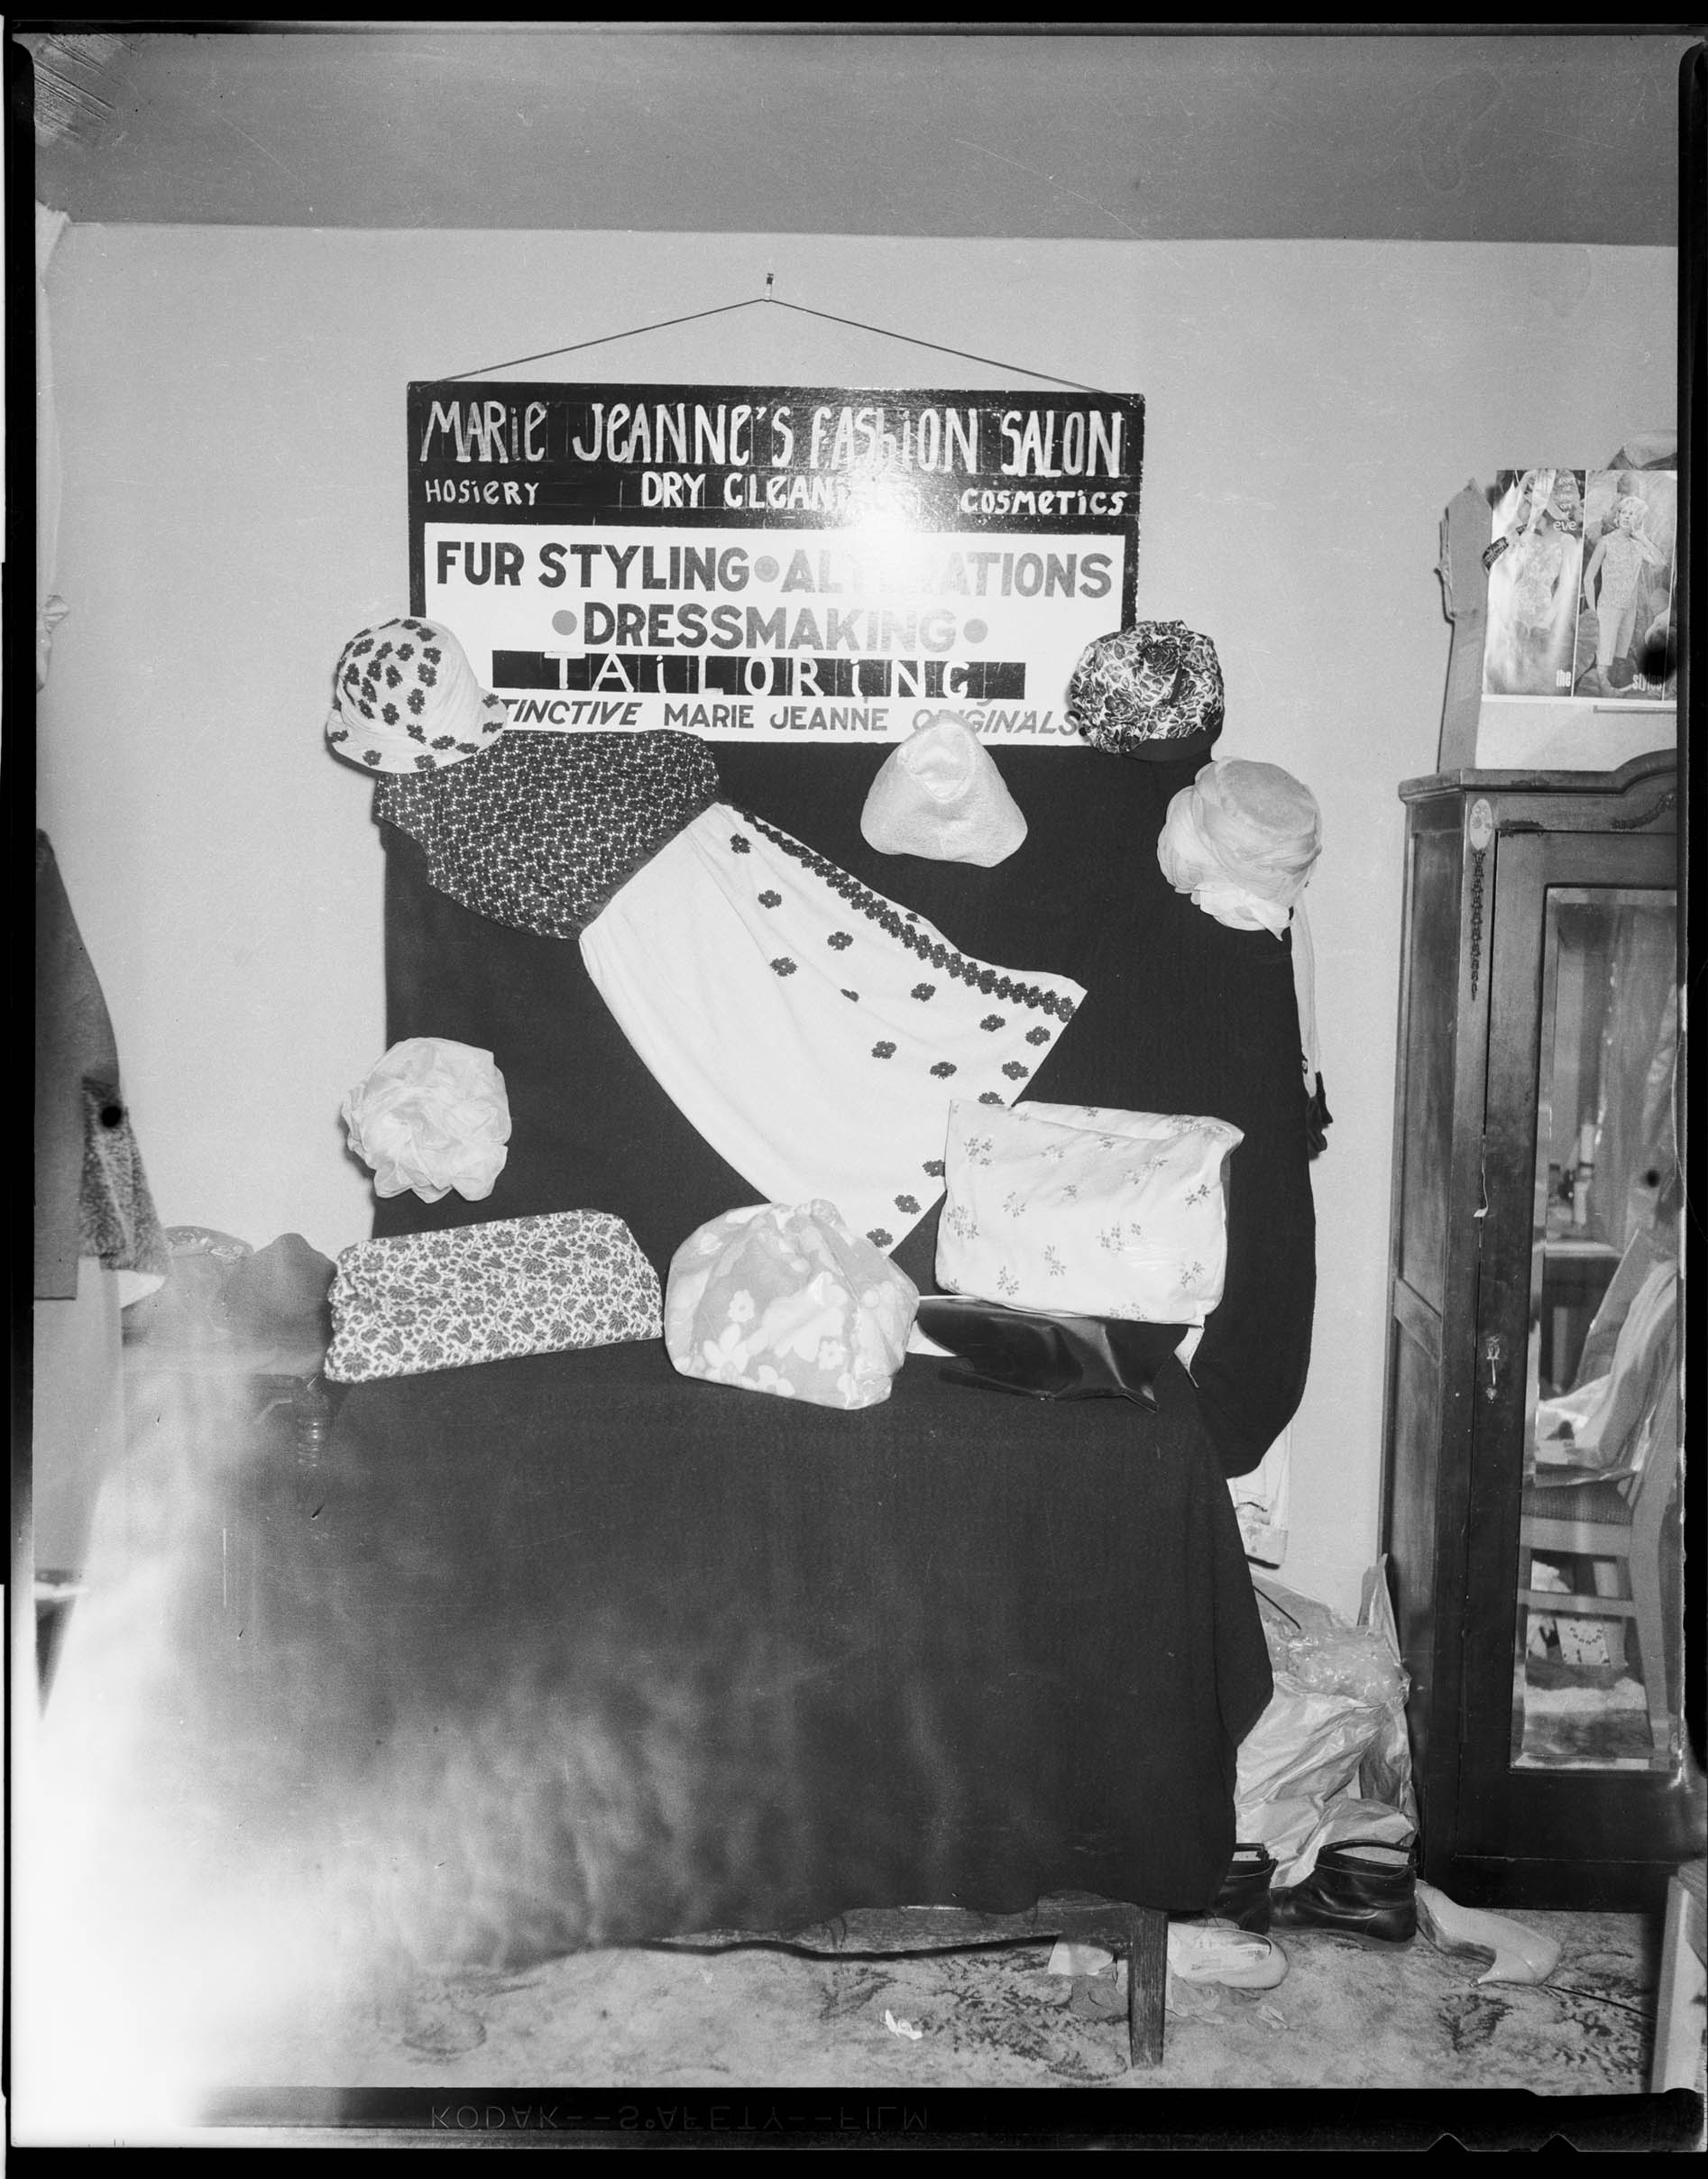 MARiE JEANNE'S FASHiON SALON
HOSiERY DRY CLEANING COSMETiCS
FUR STYLING • ALTERATIONS
• DRESSMAKING •
TAiLORiNG
TINCTIVE MARIE JEANNE ORIGINALS
eve
the
KODAK--S'AFETY--FILM